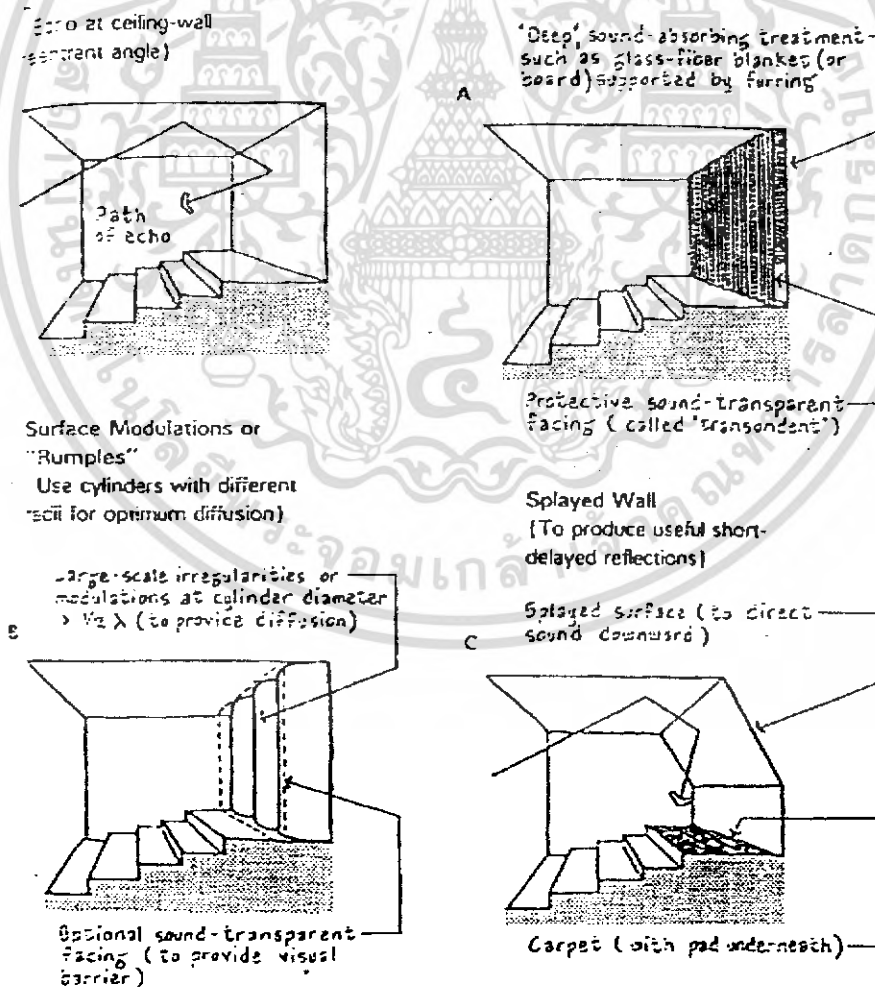 at ceiling-wall
angle)
Path
of echo
A
"Deep" sound-absorbing treatment
such as glass-fiber blanket (or
board) supported by furring
Protective sound-transparent
facing (called "transondent")
Surface Modulations or
"Rumples"
Use cylinders with different
for optimum diffusion)
Large-scale irregularities or
modulations at cylinder diameter
> ½ λ (to provide diffusion)
B
Optional sound-transparent
facing (to provide visual
barrier)
Splayed Wall
(To produce useful short-
delayed reflections)
Splayed surface (to direct
sound downward)
C
Carpet (with pad underneath)
พระจอมเกล้าเจ้าคุณทหารลาดกระ